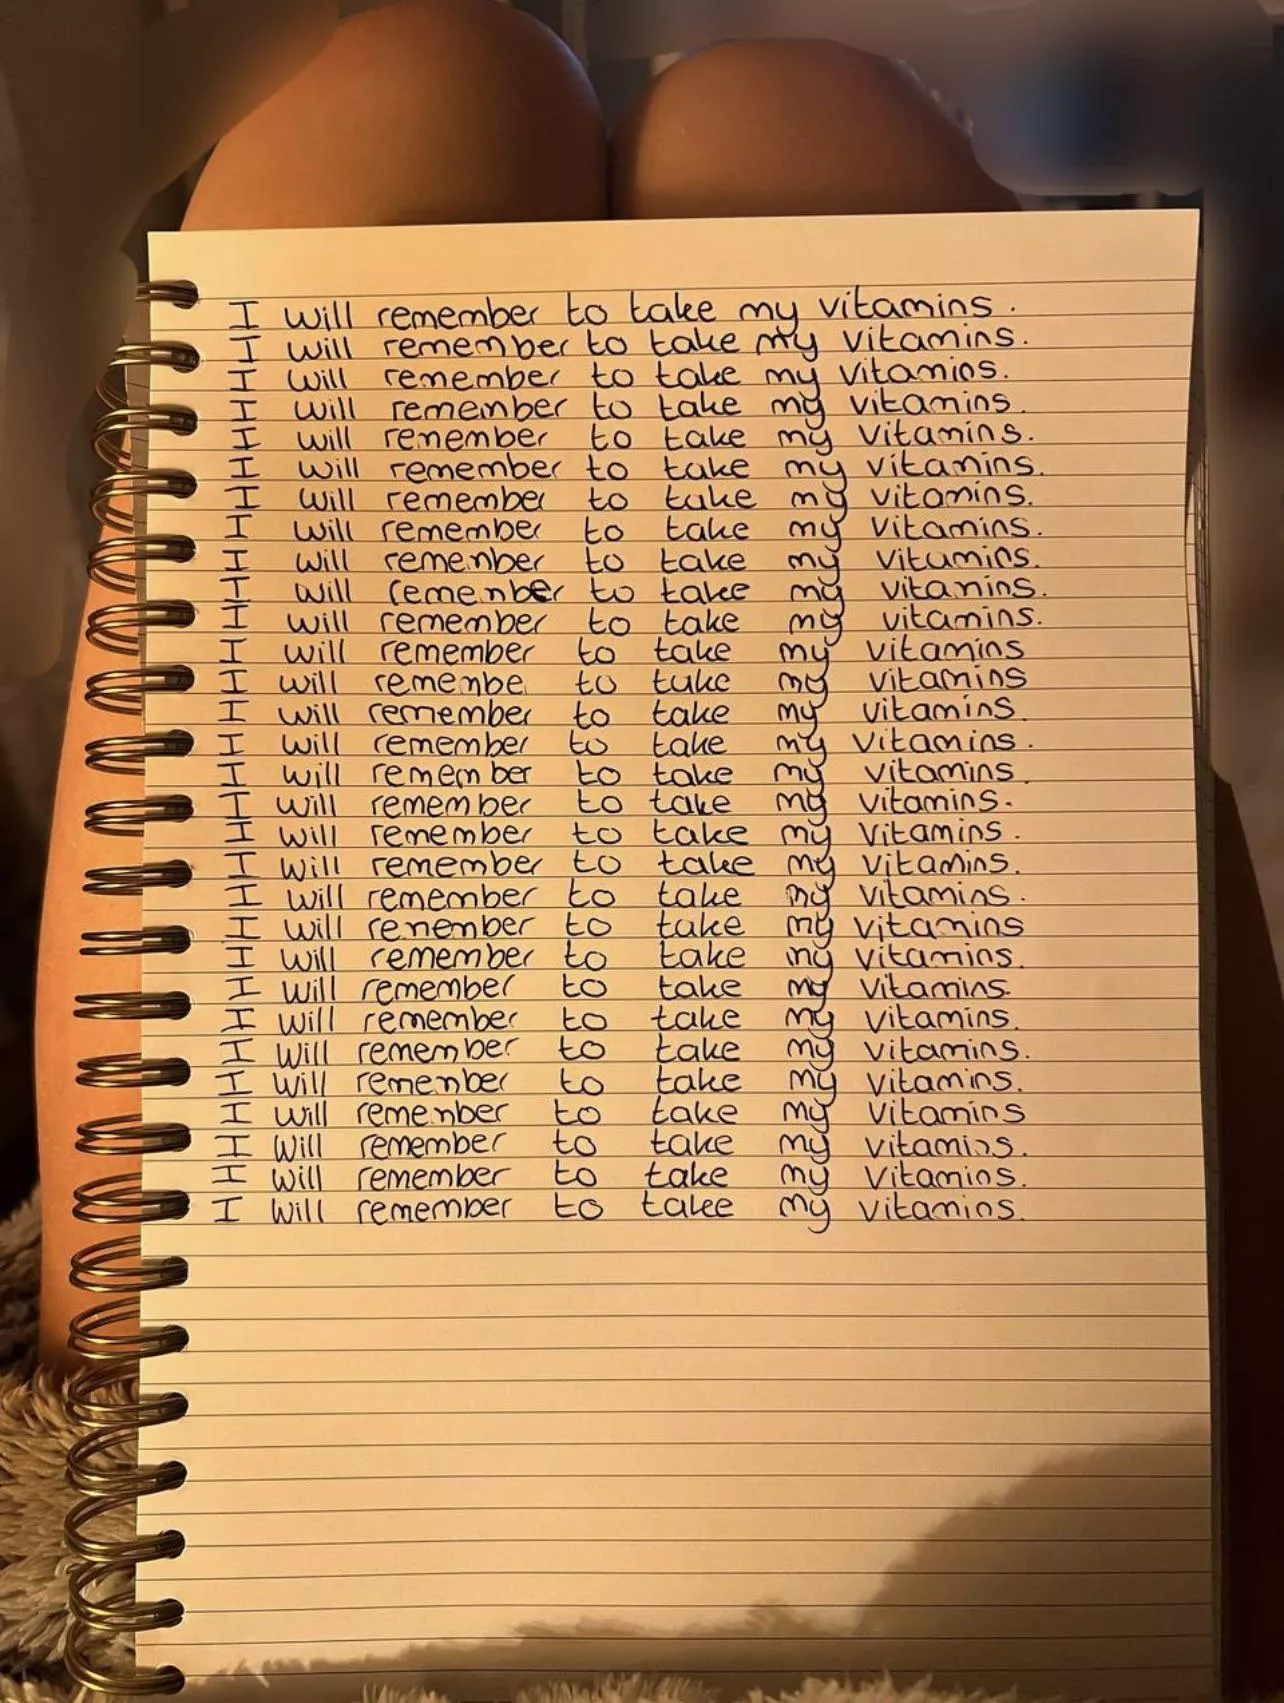 I will remember to take my vitamins.
I will remember to take my vitamins.
I will remember to take my vitamins.
I will remember to take my vitamins.
I will remember to take my vitamins.
I will remember to take my vitamins.
I will remember to take my vitamins.
I will remember to take my vitamins.
I will remember to take my vitamins.
I will remember to take my vitamins.
I will remember to take my vitamins.
I will remember to take my vitamins
I will remembe to take my vitamins
I will remember to take my vitamins.
I will remember to take my vitamins.
I will remember to take my vitamins.
I will remember to take my vitamins.
I will remember to take my vitamins.
I will remember to take my vitamins.
I will remember to take my vitamins.
I will remember to take my vitamins
I will remember to take my vitamins.
I will remember to take my vitamins.
I will remember to take my vitamins.
I will remember to take my vitamins.
I will remember to take my vitamins.
I will remember to take my vitamins
I will remember to take my vitamins.
I will remember to take my vitamins.
I will remember to take my vitamins.